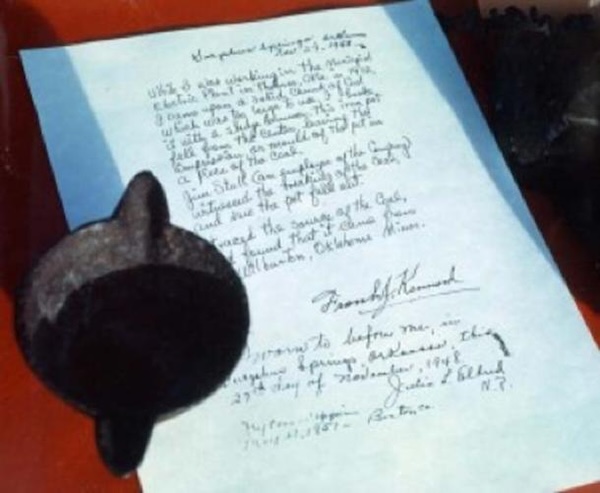 Sulphur Springs, Ark
Nov. 27, 1948
While I was working in the Municipal
Electric Plant in Thomas, Okla in 1912,
I came upon a solid chunk of coal
which was too large to use. I broke
it with a sledge hammer. This iron pot
fell from the center, leaving the
impression or mould of the pot in
a piece of the coal.
Jim Stall (an employee of the Company)
witnessed the breaking of the coal,
and saw the pot fall out.
traced the source of the coal,
found that it came from
Wilburton, Oklahoma Mines.
Frank J. Kennard
Sworn to before me, in
Sulphur Springs, Arkansas, this
27th day of November, 1948
Julia L Eldred
N.P.
My Com expires
1951 - Benton Co.